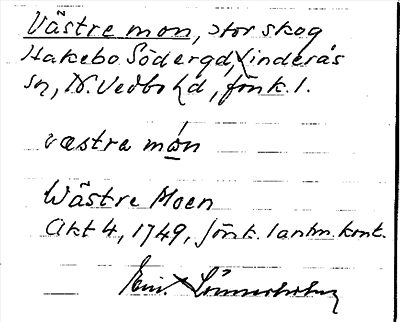 Västre mon, stor skog
Hakebo Södergd, Linderås
sn, N. Vedbo hd, Jönk. l.
västra mo̱n
Wästre Moen
Akt 4, 1749, Jönk. lantm. kont.